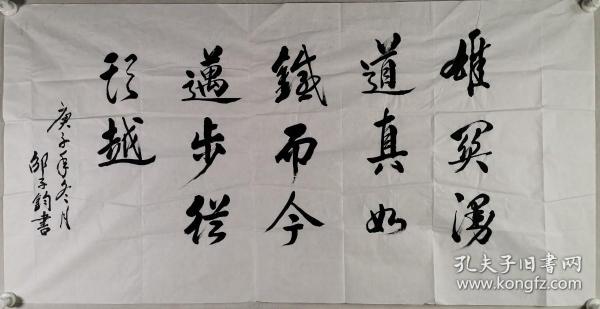 雄关漫
道真如
鐵而今
邁步從
頭越
庚子年冬月
邹子鈞書
孔夫子旧書网
www.kongfz.com